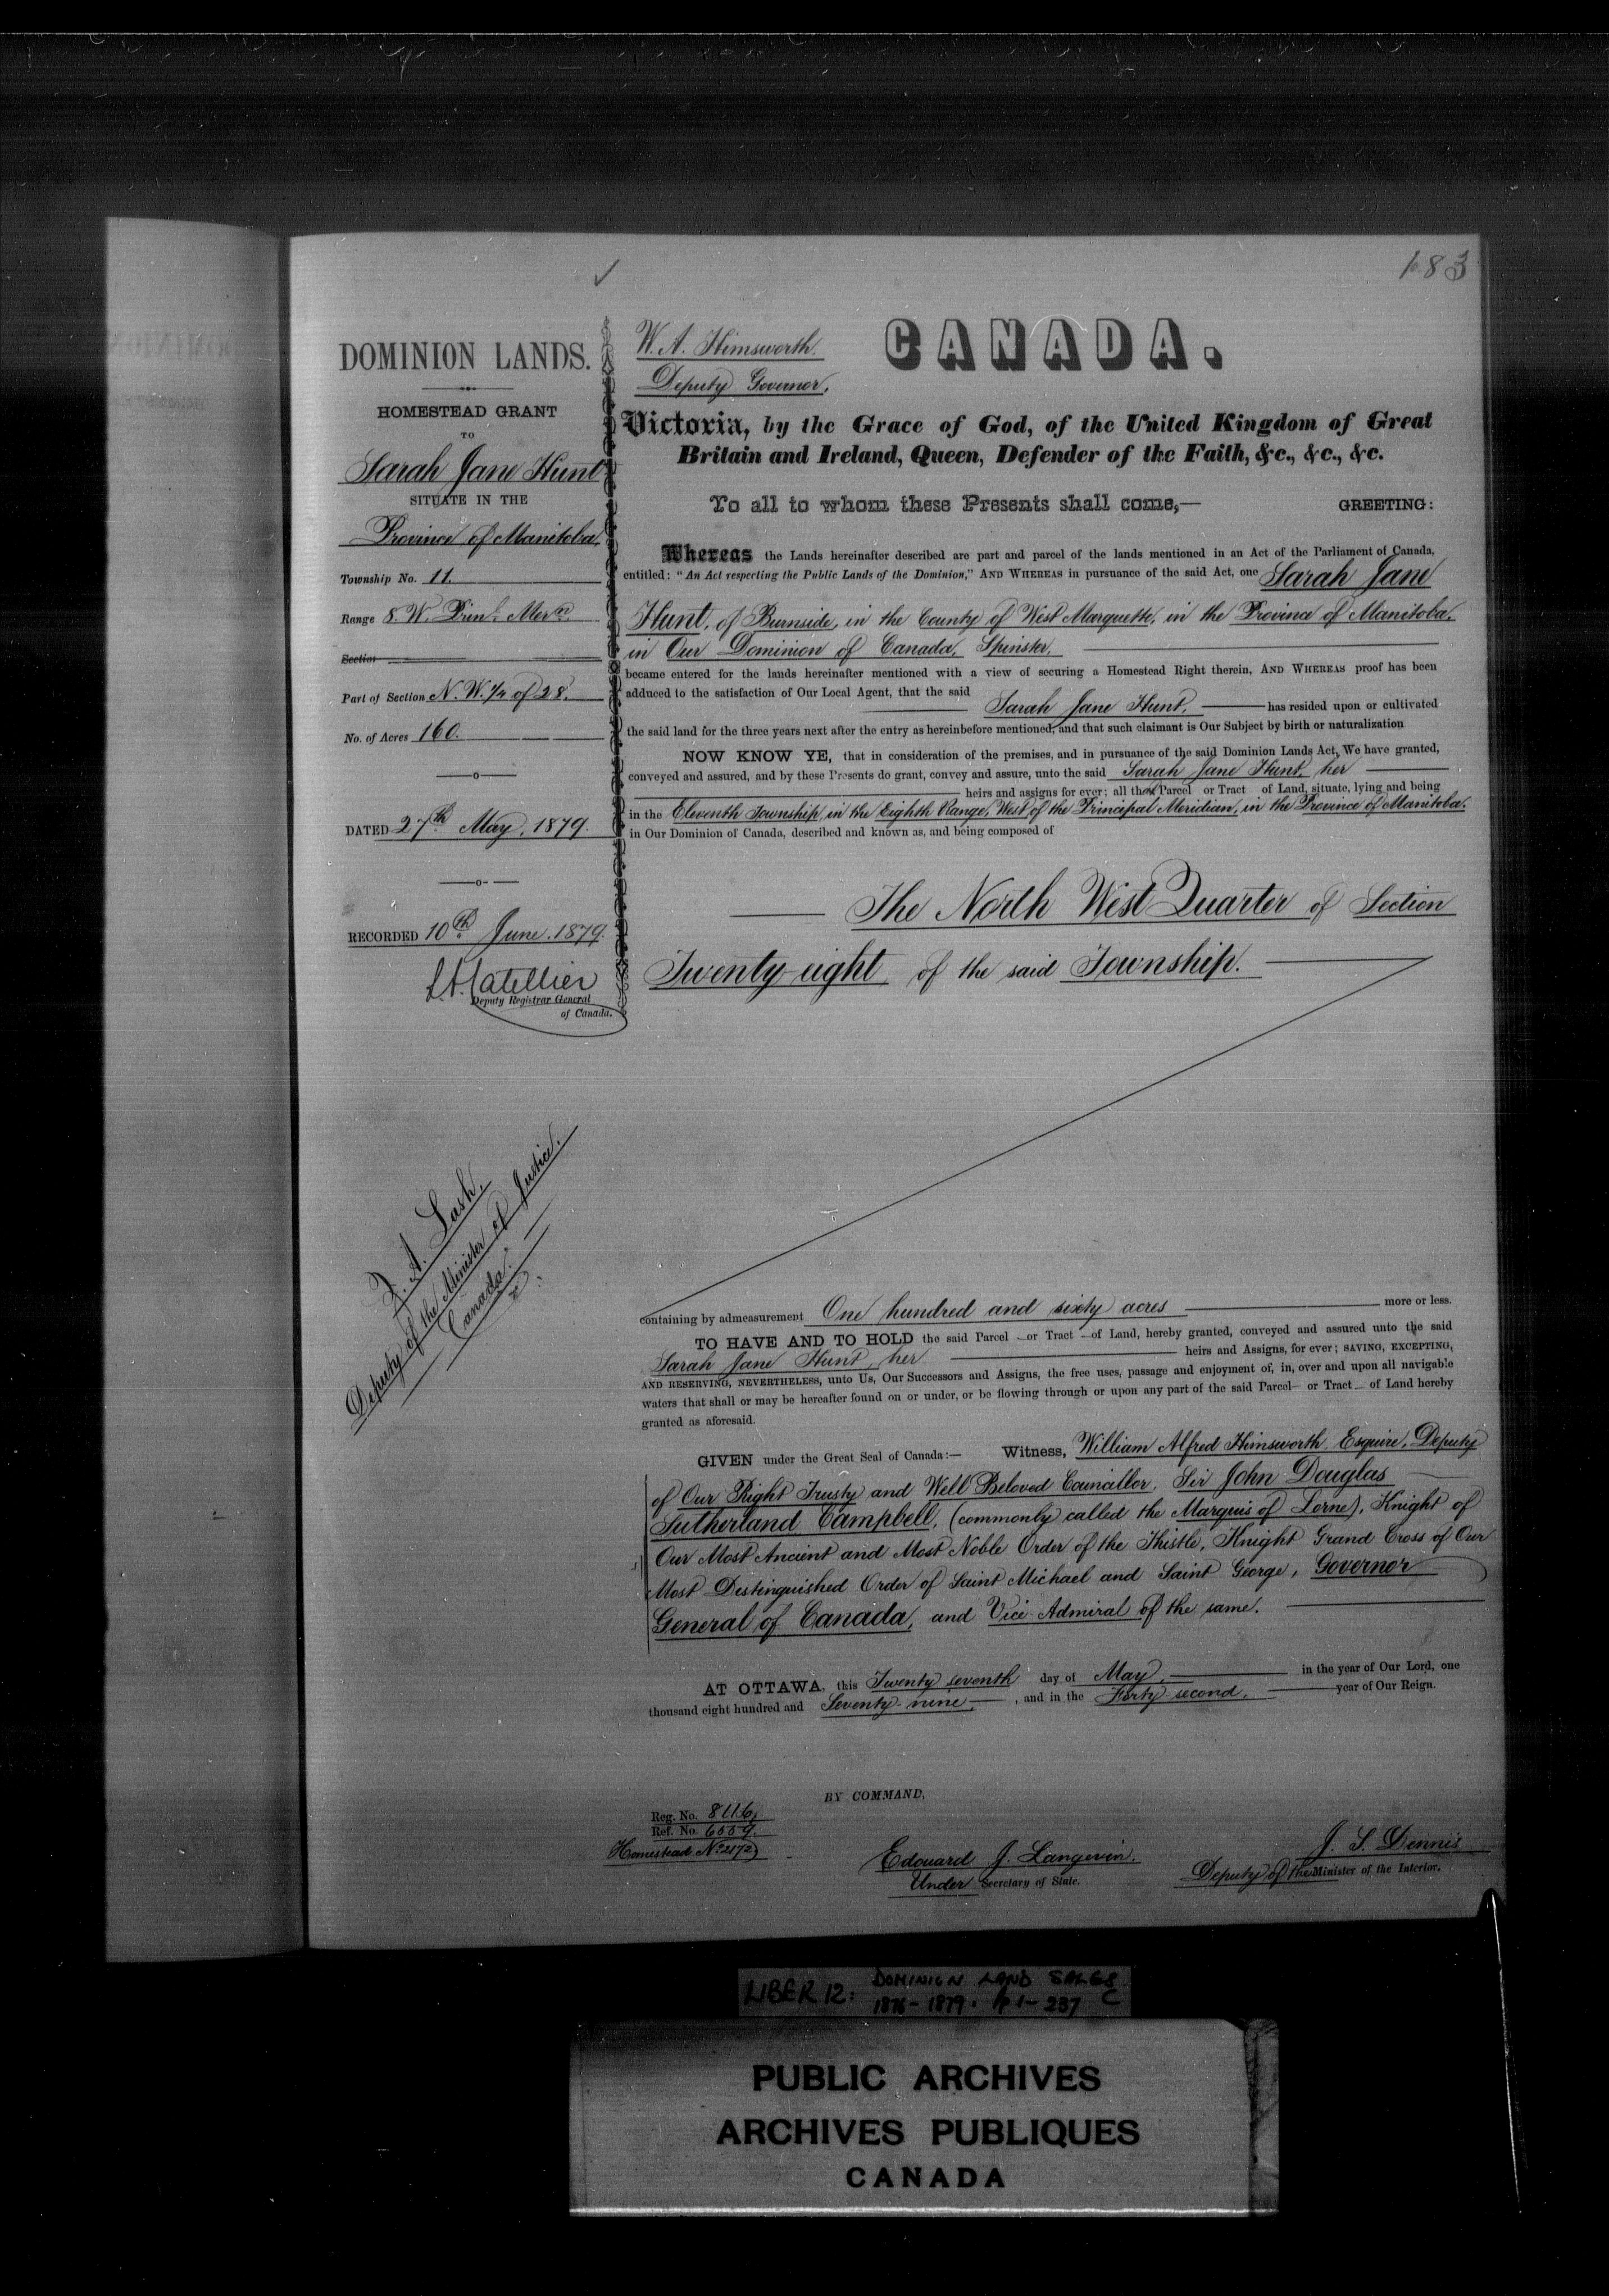 183
DOMINION LANDS.
HOMESTEAD GRANT
TO
Sarah Jane Hunt
SITUATE IN THE
Province of Manitoba.
Township No. 11.
Range 8. W. Prinl. Mern.
Section
Part of Section N. W. 1/4 of 28.
No. of Acres 160.
DATED 27th May, 1879.
RECORDED 10th June. 1879.
Deputy Registrar General
of Canada.
Z. A. Lash,
Deputy of the Minister of Justice.
Canada.
W. A. Himsworth.
Deputy Governor.
CANADA.
Victoria, by the Grace of God, of the United Kingdom of Great
Britain and Ireland, Queen, Defender of the Faith, &c., &c., &c.
To all to whom these Presents shall come,— GREETING:
Whereas the Lands hereinafter described are part and parcel of the lands mentioned in an Act of the Parliament of Canada,
entitled: "An Act respecting the Public Lands of the Dominion," AND WHEREAS in pursuance of the said Act, one Sarah Jane
Hunt, of Burnside, in the County of West Marquette, in the Province of Manitoba,
in Our Dominion of Canada, Spinster,
became entered for the lands hereinafter mentioned with a view of securing a Homestead Right therein, AND WHEREAS proof has been
adduced to the satisfaction of Our Local Agent, that the said
Sarah Jane Hunt, has resided upon or cultivated
the said land for the three years next after the entry as hereinbefore mentioned, and that such claimant is Our Subject by birth or naturalization
NOW KNOW YE, that in consideration of the premises, and in pursuance of the said Dominion Lands Act, We have granted,
conveyed and assured, and by these Presents do grant, convey and assure, unto the said Sarah Jane Hunt, her
heirs and assigns for ever; all that Parcel or Tract of Land, situate, lying and being
in the Eleventh Township, in the Eighth Range, West of the Principal Meridian, in the Province of Manitoba.
in Our Dominion of Canada, described and known as, and being composed of
The North West Quarter of Section
Twenty-eight of the said Township.
containing by admeasurement One hundred and sixty acres more or less.
TO HAVE AND TO HOLD the said Parcel or Tract of Land, hereby granted, conveyed and assured unto the said
Sarah Jane Hunt, her heirs and Assigns, for ever; SAVING, EXCEPTING,
AND RESERVING, NEVERTHELESS, unto Us, Our Successors and Assigns, the free uses, passage and enjoyment of, in, over and upon all navigable
waters that shall or may be hereafter found on or under, or be flowing through or upon any part of the said Parcel or Tract of Land hereby
granted as aforesaid.
GIVEN under the Great Seal of Canada:— Witness, William Alfred Himsworth, Esquire, Deputy
of Our Right Trusty and Well Beloved Councillor, Sir John Douglas
Sutherland Campbell, (commonly called the Marquis of Lorne), Knight of
Our Most Ancient and Most Noble Order of the Thistle, Knight Grand Cross of Our
Most Distinguished Order of Saint Michael and Saint George, Governor
General of Canada, and Vice Admiral of the same.
AT OTTAWA, this Twenty seventh day of May, in the year of Our Lord, one
thousand eight hundred and Seventy-nine, and in the Forty second, year of Our Reign.
BY COMMAND,
Reg. No. 8116.
Ref. No. 6559.
Homestead No. 2172
Edouard J. Langevin.
Under Secretary of State.
J. S. Dennis
Deputy of the Minister of the Interior.
LIBER 12: DOMINION LAND SALES
1876-1879. pp 1-237 C
PUBLIC ARCHIVES
ARCHIVES PUBLIQUES
CANADA